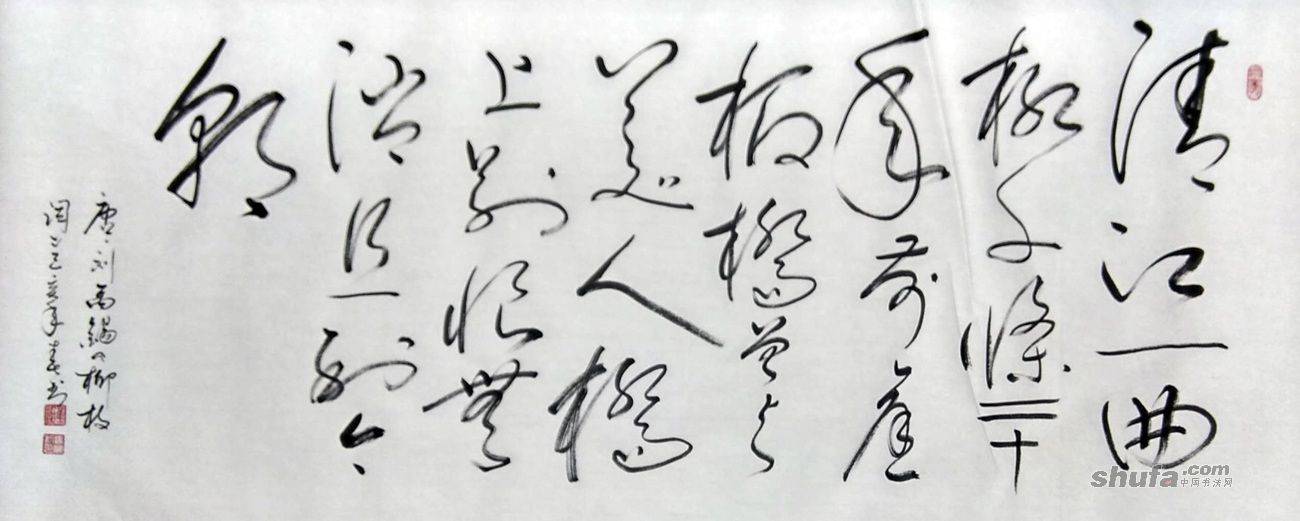 清江一曲
柳千條二十
年前舊
板橋曾与
美人橋
上别恨無
消息到今
朝
唐刘禹錫柳枝
年春书
shufa.com
中国书法网